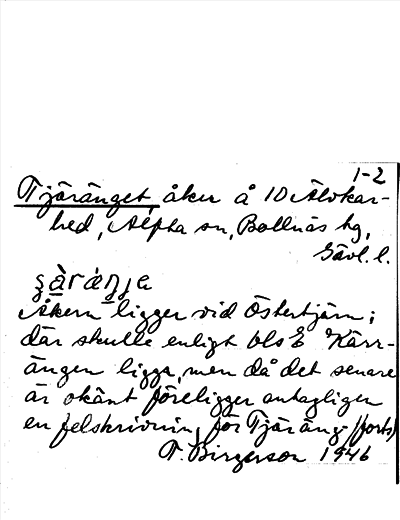 1-2
Tjäränget, åker å 10 Älvkar-
hed, Alfta sn, Bollnäs hg,
Gävl. l.
Åkern ligger vid Östertjärn;
där skulle enligt bls E Kärr-
ängen ligga, men då det senare
är okänt föreligger antagligen
en felskrivning för Tjäräng- (forts)
T. Birgerson 1946